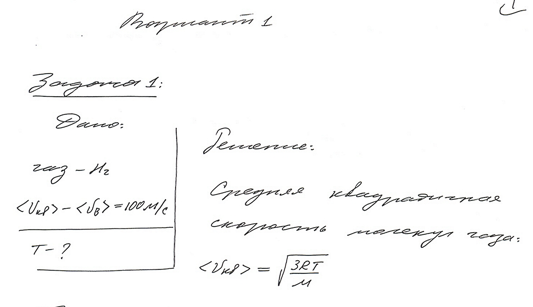 Вариант 1
Задача 1:
Дано:
газ – H₂
<Vкв> – <Vв> = 100 м/с
T – ?
Решение:
Средняя квадратичная
скорость молекул газа:
<Vкв> = √(3RT/M)